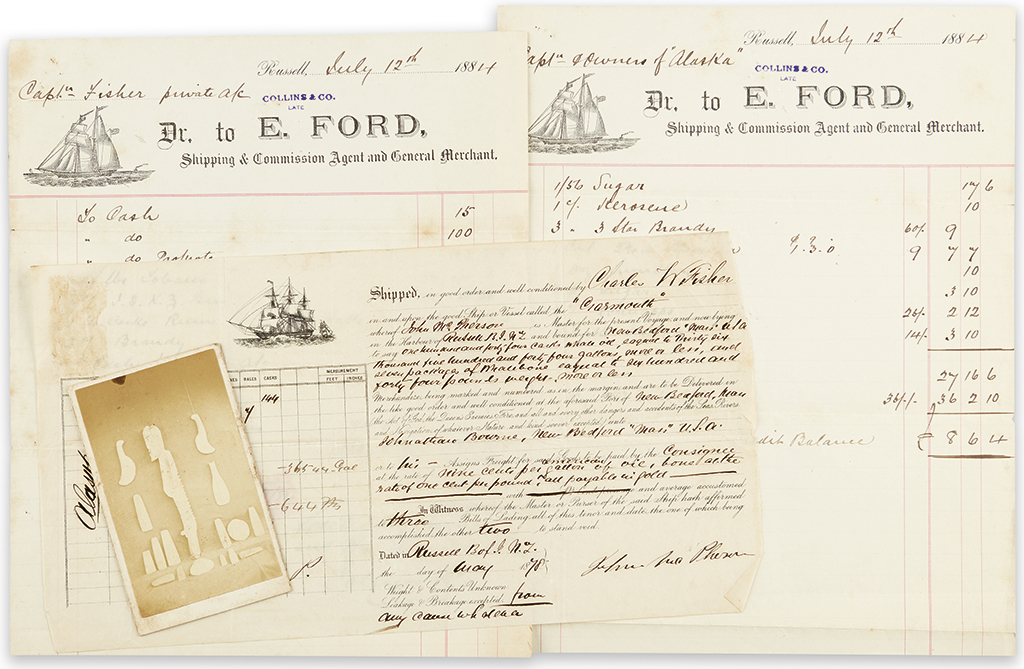 Russell, July 12th 1884
Captn Fisher private a/c
COLLINS & CO.
LATE
Dr. to E. FORD,
Shipping & Commission Agent and General Merchant.
To Cash 15
" do 100
" do
Russell, July 12th 1884
Captn & Owners of "Alaska"
COLLINS & CO.
LATE
Dr. to E. FORD,
Shipping & Commission Agent and General Merchant.
1/56 Sugar 17 6
1 c/. Kerosene 10
3 " 3 Star Brandy 60/- 9
9 7 7
10
3 10
26/- 2 12
14/- 3 10
27 16 6
36 2 10
Balance £ 8 6 4
Shipped, in good order and well conditioned by Charles W Fisher
in and upon the good Ship or Vessel called the "Yarmouth"
whereof John McPherson is Master for the present Voyage and now lying
in the Harbour of Russell N.Z and bound for New Bedford "Mass" U.S.A
to say one hundred and forty four casks whale oil, equal to thirty six
thousand five hundred and forty four gallons, more or less, and
seven packages of Whalebone equal to six hundred and
forty four pounds weight. more or less
Merchandize, being marked and numbered as in the margin and are to be Delivered in
the like good order and well conditioned at the aforesaid Port of New Bedford, Mass
the Act of God, the Queens Enemies, Fire, and all and every other dangers and accidents of the Seas, Rivers
and Navigation of whatever Nature and kind soever excepted unto
Johnathan Bourne, New Bedford "Mass" U.S.A.
or to his Assigns Freight for said Goods to be paid by the Consignee
at the rate of Nine cents per american gallon of oil, bone at the
rate of one cent per pound, all payable in gold
with and average accustomed
In Witness whereof the Master or Purser of the said Ship hath affirmed
to three Bills of Lading all of this tenor and date, the one of which being
accomplished the other two to stand void.
Dated in Russell B of I. N.Z.
the day of May 1878
John MacPherson
Weight & Contents Unknown
Leakage & Breakage excepted from
any cause whatever
BALES CASKS MEASUREMENT
FEET INCHES
144
7
36544 Gal
644